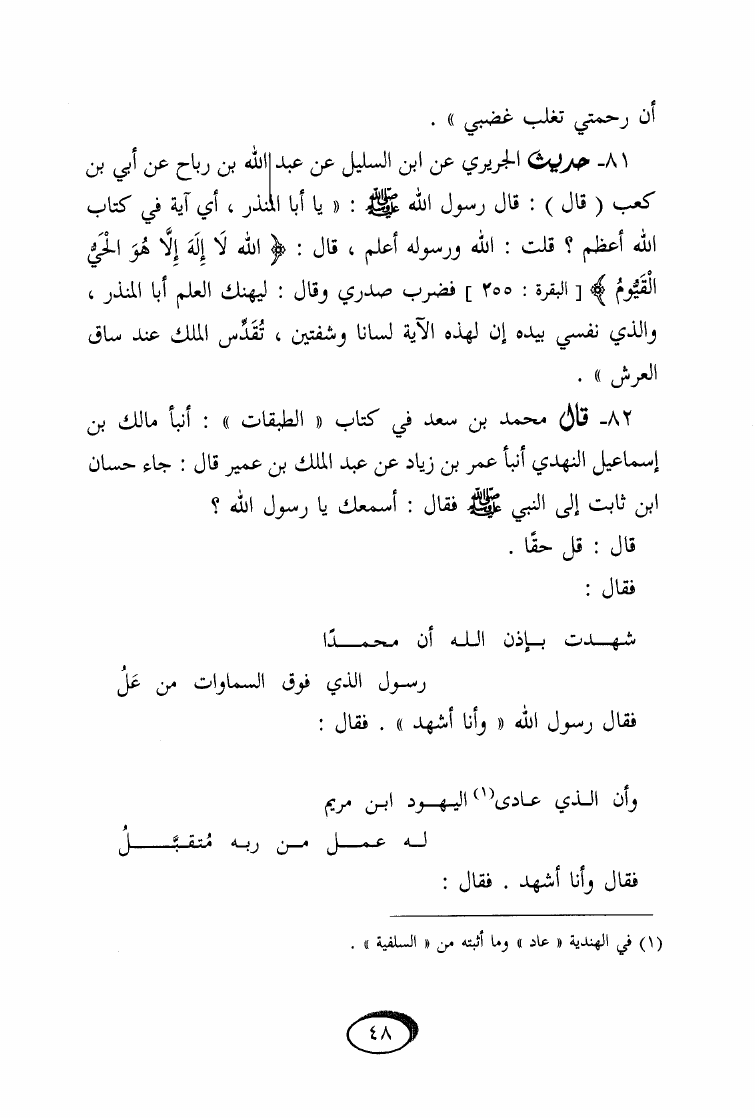 أن رحمتي تغلب غضبي » .
٨١- حديث الجريري عن ابن السليل عن عبد الله بن رباح عن أبي بن
كعب ( قال ) : قال رسول الله ﷺ : « يا أبا المنذر ، أي آية في كتاب
الله أعظم ؟ قلت : الله ورسوله أعلم ، قال : ﴿ الله لَا إِلَهَ إِلَّا هُوَ الْحَيُّ
الْقَيُّومُ ﴾ [ البقرة : ٢٥٥ ] فضرب صدري وقال : ليهنك العلم أبا المنذر ،
والذي نفسي بيده إن لهذه الآية لسانا وشفتين ، تُقَدِّس الملك عند ساق
العرش » .
٨٢- قال محمد بن سعد في كتاب « الطبقات » : أنبأ مالك بن
إسماعيل النهدي أنبأ عمر بن زياد عن عبد الملك بن عمير قال : جاء حسان
ابن ثابت إلى النبي ﷺ فقال : أسمعك يا رسول الله ؟
قال : قل حقًا .
فقال :
شهدت بإذن الله أن محمدًا
رسول الذي فوق السماوات من عَلُ
فقال رسول الله « وأنا أشهد » . فقال :
وأن الذي عادى(١) اليهود ابن مريم
له عمل من ربه مُتقبَّلُ
فقال وأنا أشهد . فقال :
(١) في الهندية « عاد » وما أثبته من « السلفية » .
٤٨